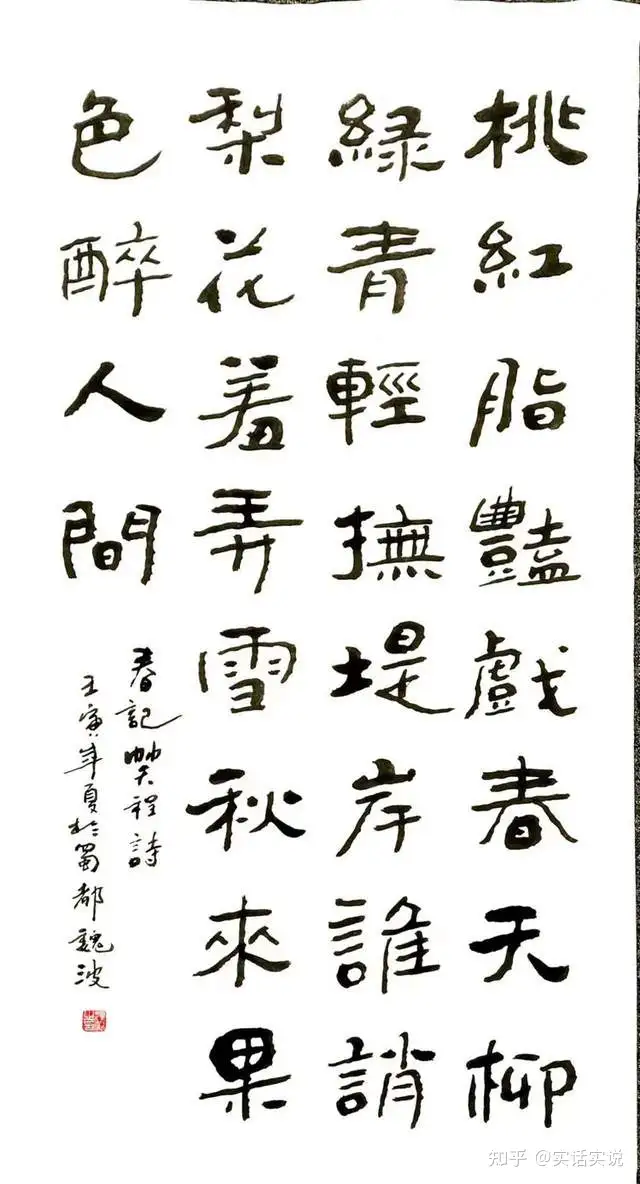 桃紅脂豔戲春天柳
綠青輕撫堤岸誰誚
梨花羞弄雪秋來果
色醉人間
春記程詩
壬寅年夏於蜀都魏波
知乎 @实话实说